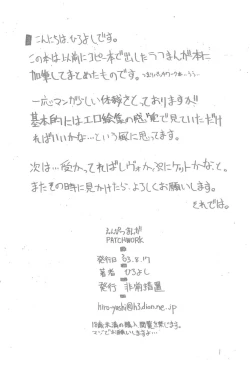 こんにちは、ひろよしです。
この本は以前にコピー本で出したラフまんが本に
加筆してまとめたものです。
一応マンガらしい体裁をとっておりますが
基本的にはエロ絵集の感覚で見ていただけ
ればいいかな…という風に思ってます。
次は…受かってればレヴォか、次にケットかなと。
またその時に見かけたら、よろしくお願いします。
それでは。
PATCHWORK
発行日 03.8.17
著者 ひろよし
発行 非常措置
hiro-yoshi@h3.dion.ne.jp
18歳未満の購入、閲覧を禁じます。